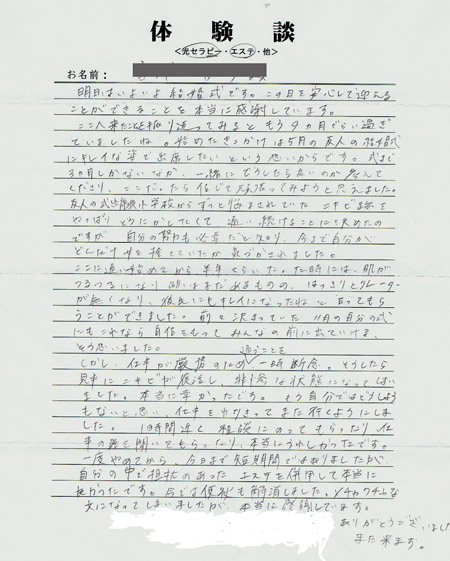 体験談
＜光セラピー・エステ・他＞
お名前：
明日はいよいよ結婚式です。この日を安心して迎える
ことができることを本当に感謝しています。
ここへ来たことを振り返ってみるともう9カ月ぐらい過ぎ
ていましたね。始めたきっかけは5月の友人の結婚式
にキレイな姿で出席したいという思いからです。式まで
3カ月しかないなか、一緒にどうしたら良いのか考えて
くださり、ここだったら信じて頑張ってみようと思えました。
友人の式出席後小学校からずっと悩まされていたニキビを
やっぱりどうにかしたくて通い続けることに決めたの
ですが 自分の努力も必要だと知り、今まで自分が
どんだけ手を捨てていたか気づかされました。
ここに通い始めてから半年くらいたった時には、肌が
つるつるになり 跡はまだあるものの、はっきりとクレーター
が無くなり、彼氏にもキレイになったねと言ってもら
うことができました。前々決まっていた11月の自分の式
にもこれなら自信をもってみんなの前に出ていける、
そう思いました。
しかし、仕事が最もの為通うことを一時断念。そうしたら
見事にニキビが復活し、非常な状態になってしまい
ました。本当に辛かったです。もう自分ではどうしよう
もないと思い、仕事をやりきってまた行くようにしま
した。1時間近く相談にのってもらったり仕
事の話を聞いてもらったり、本当にうれしかったです。
一度やめてから、今日まで短期間ではありましたが、
自分の中で抵抗のあったエステを併用して本当に
良かったです。今では便秘も解消しました。メチャクチャな
文になってしまいましたが、本当に感謝しています。
ありがとうございました
また来ます。